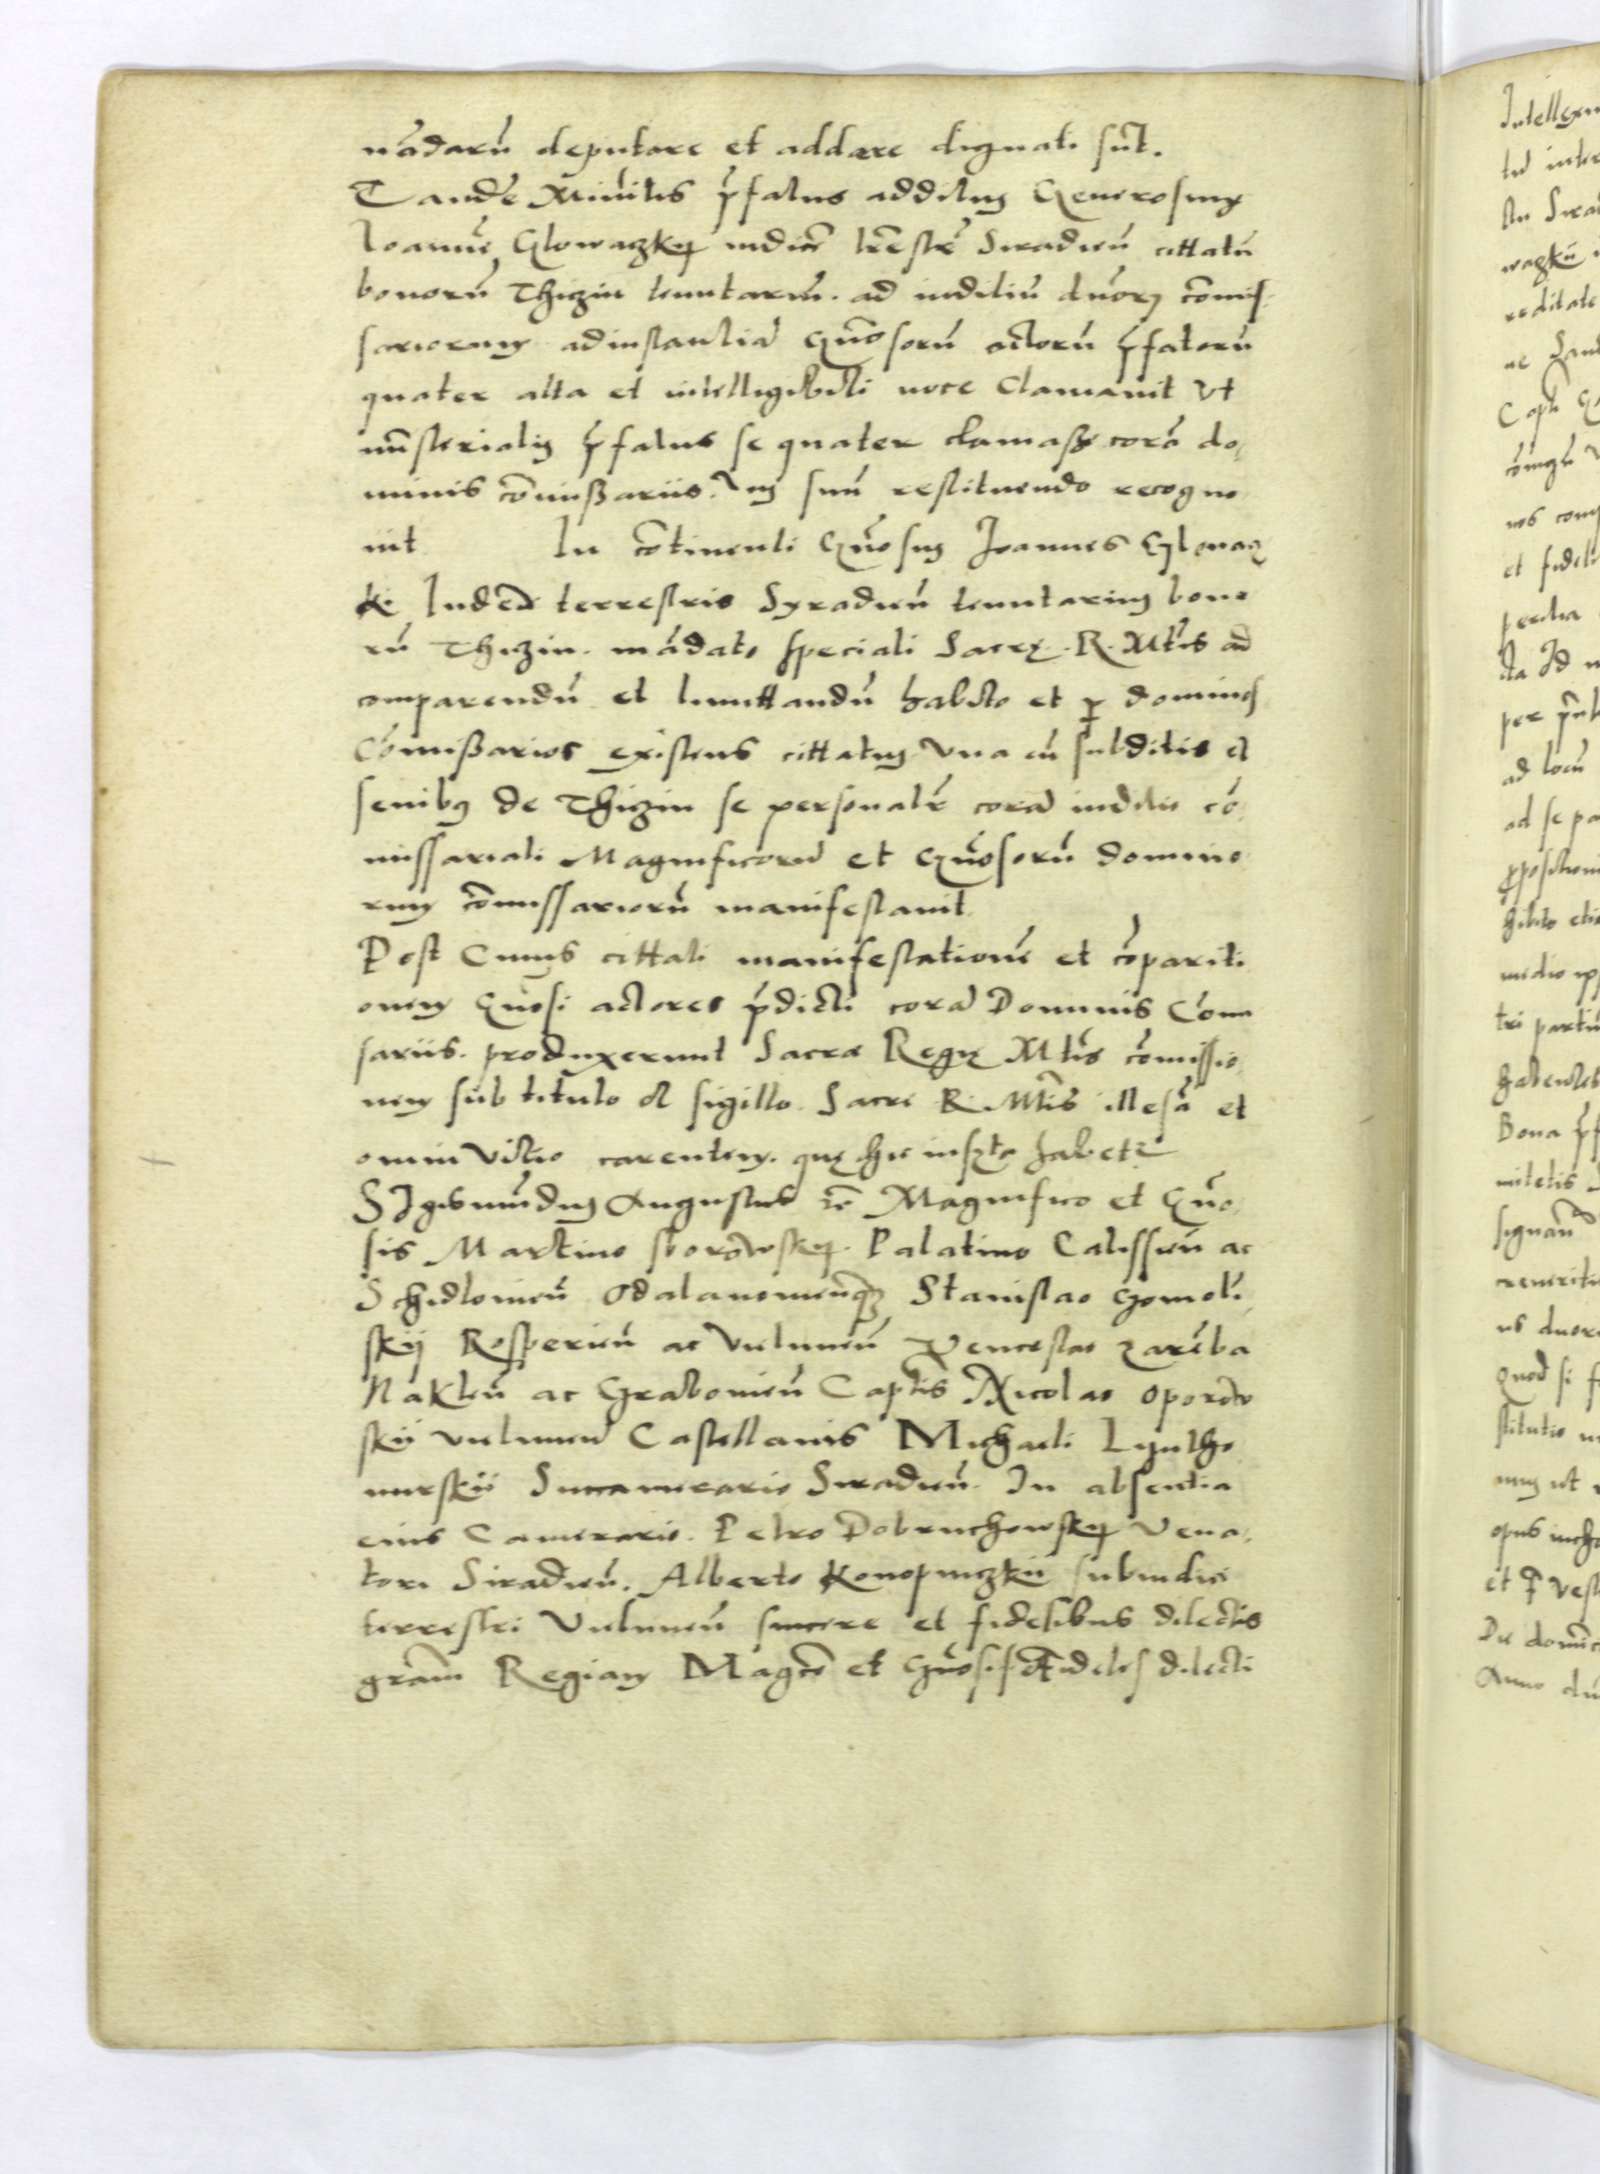 nādarū deputare et addare dignati sūt.
Tandē Miñlis p̄fatus additus Generosum
Ioannē Glowaczky iudicē trēstrē Siradieñ cittatū
bonorū Thizin tenutariū. ad iuditiū dnōrꝫ cōmis-
sariorum ad instantiā Gn̄osorū actorū p̄fatorū
quater alta et intelligibili uoce Clamauit Vt
mīnsterialis p̄fatus se quater clamasse corā do-
minis cōmissariis. suū restituendo recogno
uit In cōtinenti Gn̄osus Joannes Glouacz
ki Iudex terrestris Syradieñ tenutarius bono
rū Thizin. mādato speciali Sacrę. R. Mtis ad
comparendū et limittandū habito et ꝑ dominos
Cōmissarios existens cittatus Vna cū subditis et
senibus de Thizin se personalr̄ corā iuditio cō-
missariali Magnificorū et Gn̄osorū domino-
rum cōmissariorū manifestauit.
Post Cuius cittati manifestationē et cōpariti
onem Gn̄osi actores p̄dicti corā Dominis Cōmi
sariis. produxerunt Sacrae Regię Mtis cōmissio
nem sub titulo et sigillo Sacre R. Mtis illesā et
omni Vitio carentem. quę hic inserta habetr
SIgismūndus Augustus etc̄ Magnifico et Gn̄o-
sis Martino sborowsky. Palatino Calissieñ ac
Schidlouieñ Odalanouieñqꝫ Stanislao Gomoli
skij Rosperieñ ac Vielunieñ Venceslao Zarēba
Nakleñ ac Graboueñ Captis Nicolao oporow
skii vielunieñ Castellanis Michaeli Lyutho
mirskii Succamerario Siradieñ. In absentia
eius Camerario. Petro Dobruchowsky Vena-
tori Siradieñ. Alberto Konopniczkii subiudici
terrestri Vielunieñ sincere et fidelibus dilectis
gram̄ Regiam Magcē et Gn̄osi, fideles dilecti